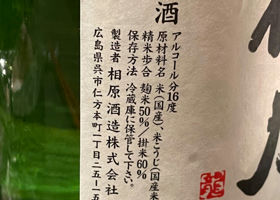 酒
アルコール分16度
原材料名 米(国産)、米こうじ(国産米
精米歩合 麹米50%/掛米60%
保存方法 冷蔵庫に保管して下さい。
製造者 相原酒造株式会社
広島県呉市仁方本町一丁目二五-一五
龍